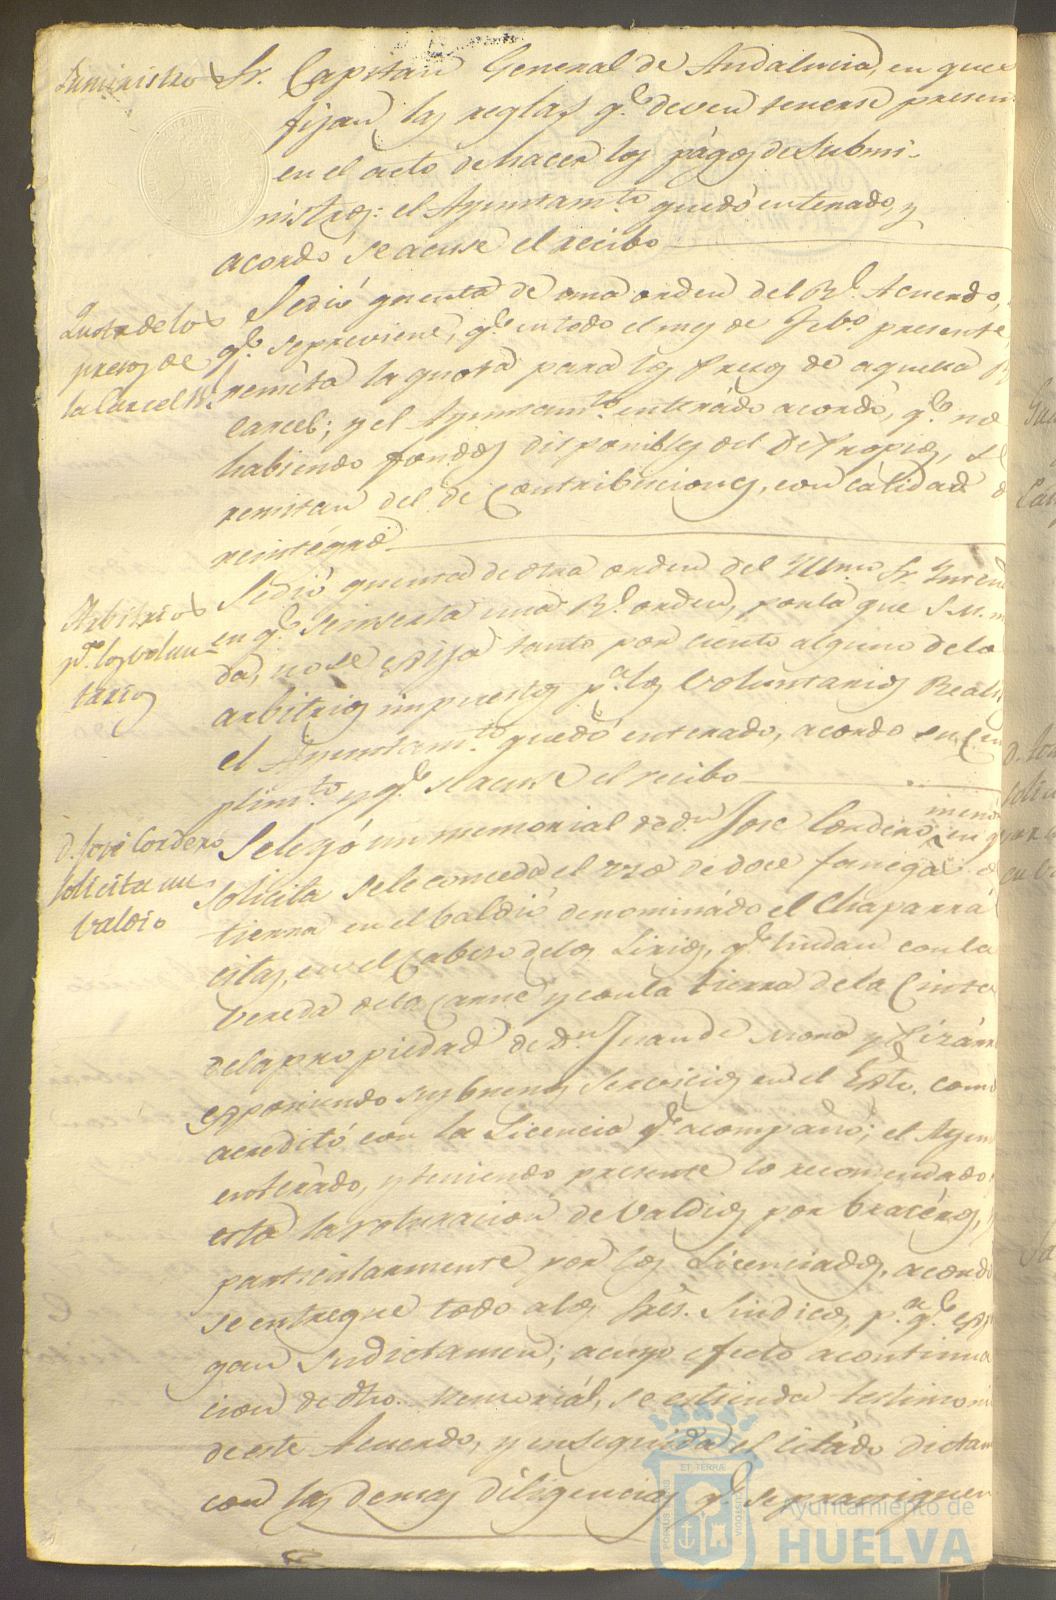 Suministro Sr. Capitan General de Andalucia, en que
fijan las reglas q.e deven tenerse presen
en el acto de hacer los págos de Submi-
nistros: el Ayuntam.to quedó enterado, y
acordó se acuse el recibo
Se dió quenta de una orden del R.l Acuerdo,
Quota de los
q.e se previene, q.e en todo el mes de Feb.o presente
presos de
remita la quota para los presos de aquella R
la Carcel R.l
Carcel; y el Ayuntam.to enterádo acordó, q.e no
habiendo fondos disponibles del de Propios, se
remitan del de Contribuciones, con calidad d
reintégro
Se dió quenta de otra orden del Yllmo Sr. Inten
Arbitrios
en q.e se inserta una R.l orden, por la que S.M. m
p.a los volun
da, no se exija tanto por ciento alguno de lo
tarios
arbitrios impuestos p.a los Voluntarios Reali
el Ayuntam.to quedó enterado, acordó su cum
plim.to y q.e se acuse el recibo
D. José Cordero
Se leyó un memorial de D.n Jose Cordero, en q
solicita un
solicita se le conceda el uso de doce fanegas d
valdio
tierra en el valdio denominádo el Chaparrá
citas, en el Cabeso de los Lirios, q.e lindan con la
vereda de la Carne y con la tierra de la Cinta
de la propiedad de D.n Juan de Mora y Pizárr
exponiendo sus buenos Servicios en el Exto. como
acreditó con la Licencia q.e acompañó; el Ayun
enterádo, y teniendo presente lo recomendado
está la roturacion de Valdios por bracéros,
particularmente por los Licenciados, acordó
se entregue todo a los Sres. Sindicos, p.a q.e exp
gan su dictamen; a cuyo efecto a continua
cion de dho. Memoriál, se estienda testimon
de este Acuerdo, y en seguida el citádo dictam
con las demas diligencias q.e se practiquen
ET TERRÆ
Ayuntamiento de
HUELVA